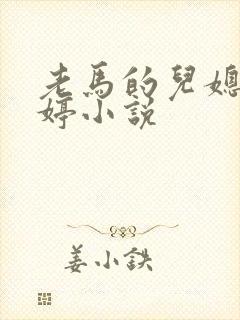 老馬的兒媳
婷小說
姜小鉄